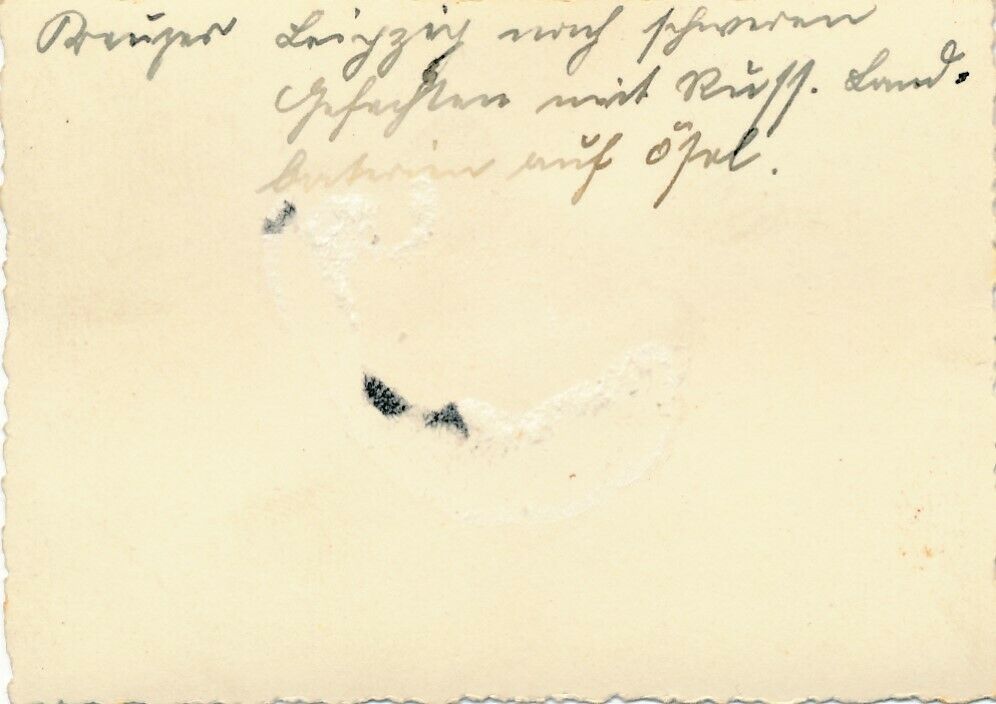 Kreuzer Leipzig nach schweren
Gefechten mit Russ. Land-
baterien auf Ösel.